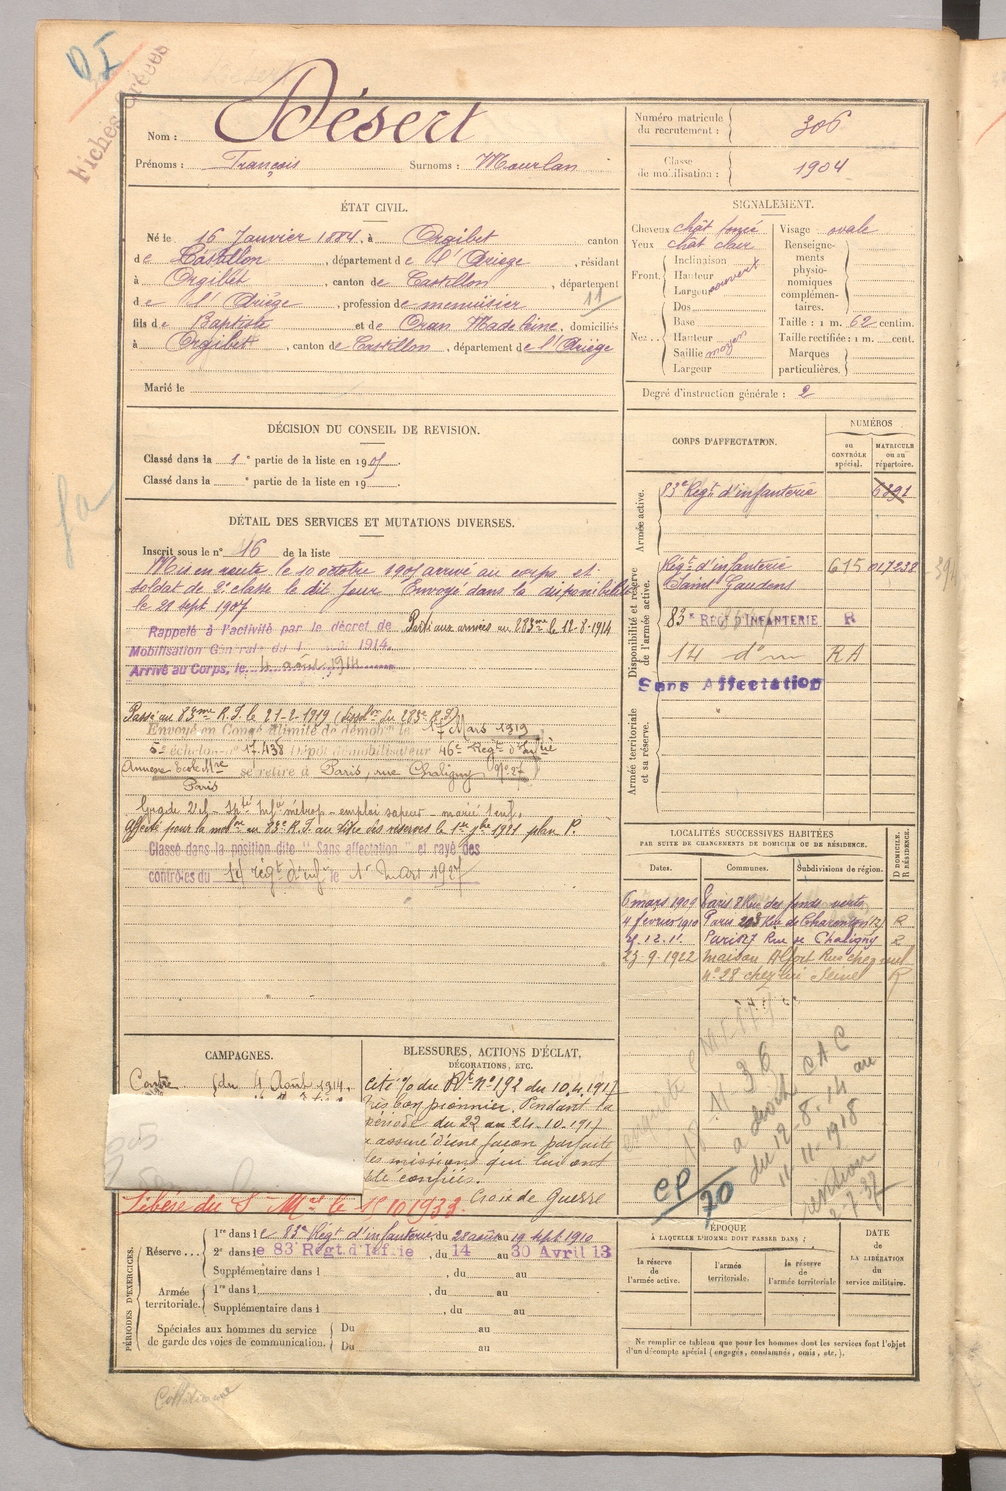 Fiches
Nom : Désert
Prénoms : François Surnoms : Mourlan
ÉTAT CIVIL.
Né le 16 Janvier 1884, à Orgibet canton
de Castillon, département de l'Ariège, résidant
à Orgibet, canton de Castillon, département
de l'Ariège, profession de menuisier 11
fils de Baptiste et de Oran Madeleine, domiciliés
à Orgibet, canton de Castillon, département de l'Ariège
Marié le
DÉCISION DU CONSEIL DE REVISION.
Classé dans la 1e partie de la liste en 1905.
Classé dans la e partie de la liste en 19
DÉTAIL DES SERVICES ET MUTATIONS DIVERSES.
Inscrit sous le n° 16 de la liste
Mis en route le 10 octobre 1905 arrivé au corps et
soldat de 2e classe le dit jour. Envoyé dans la disponibilité
le 21 sept 1907
Rappelé à l'activité par le décret de Parti aux armées au 283me le 12-8-1914
Mobilisation Générale du 1 août 1914.
Arrivé au Corps, le 4 août 1914
Passé au 83me R.I. le 21-2-1919 (dissolon du 283e R.I)
Envoyé en Congé illimité de démob. le 17 Mars 1919
5e échelon n° 17.438 Dépôt démobilisateur 46e Regt d'Infie
Annexe Ecole Mre se retire à Paris, rue Chaligny N° 27
Paris
Affecté pour la mobon au 83e R.I. au titre des réserves le 1er 1921 plan P.
Classé dans la position dite "Sans affectation" et rayé des
contrôles du 14 régt d'infie le 1 mars 1927
CAMPAGNES.
Contre du 4 Août 1914
Libéré du S Mre le 15 10 1933.
BLESSURES, ACTIONS D'ÉCLAT,
DÉCORATIONS, ETC.
Cité %o du Rt N° 192 du 10.4.1917
Très bon pionnier. Pendant la
période du 22 au 24-10-1917
a assuré d'une façon parfaite
les missions qui lui ont
été confiées.
Croix de Guerre
PÉRIODES D'EXERCICES.
Réserve... 1re dans le 83e Régt d'infanterie du 28 août au 19 sept. 1910
2e dans le 83 Régt d'Inf-ie, du 14 au 30 Avril 13
Supplémentaire dans l , du au
Armée territoriale. 1re dans l , du au
Supplémentaire dans l , du au
Spéciales aux hommes du service Du au
de garde des voies de communication. Du au
Numéro matricule du recrutement : 306
Classe de mobilisation : 1904
SIGNALEMENT.
Cheveux chât foncé
Yeux chât clair
Front. Inclinaison
Hauteur
Largeur couvert
Nez... Dos
Base
Hauteur
Saillie moyen
Largeur
Visage ovale
Renseignements physionomiques complémentaires.
Taille : 1 m. 62 centim.
Taille rectifiée : 1 m. cent.
Marques particulières.
Degré d'instruction générale : 2
CORPS D'AFFECTATION.
NUMÉROS
au CONTRÔLE spécial.
MATRICULE ou au répertoire.
Armée active.
83e Régt d'infanterie
Disponibilité et réserve de l'armée active.
Régt d'infanterie 615 017238
Saint Gaudens
83 e REGt D'INFANTERIE R
14 do RA
Sans Affectation
Armée territoriale et sa réserve.
LOCALITÉS SUCCESSIVES HABITÉES
PAR SUITE DE CHANGEMENTS DE DOMICILE OU DE RÉSIDENCE.
D DOMICILE. R RÉSIDENCE.
Dates. Communes. Subdivisions de région.
6 mars 1909 Paris 8 Rue des fonds verts
4 février 1910 Paris 208 Rue de Charenton (12) R
Paris 27 Rue de Chaligny R
23-9-1922 Maison Alfort Rue
n° 28 chez lui Seine R
a droit CAC
du 12-8-14 au
11-11-1918
CP/20
ÉPOQUE
À LAQUELLE L'HOMME DOIT PASSER DANS :
la réserve de l'armée active.
l'armée territoriale.
la réserve de l'armée territoriale
DATE de LA LIBÉRATION du service militaire.
Ne remplir ce tableau que pour les hommes dont les services font l'objet
d'un décompte spécial (engagés, condamnés, omis, etc.).